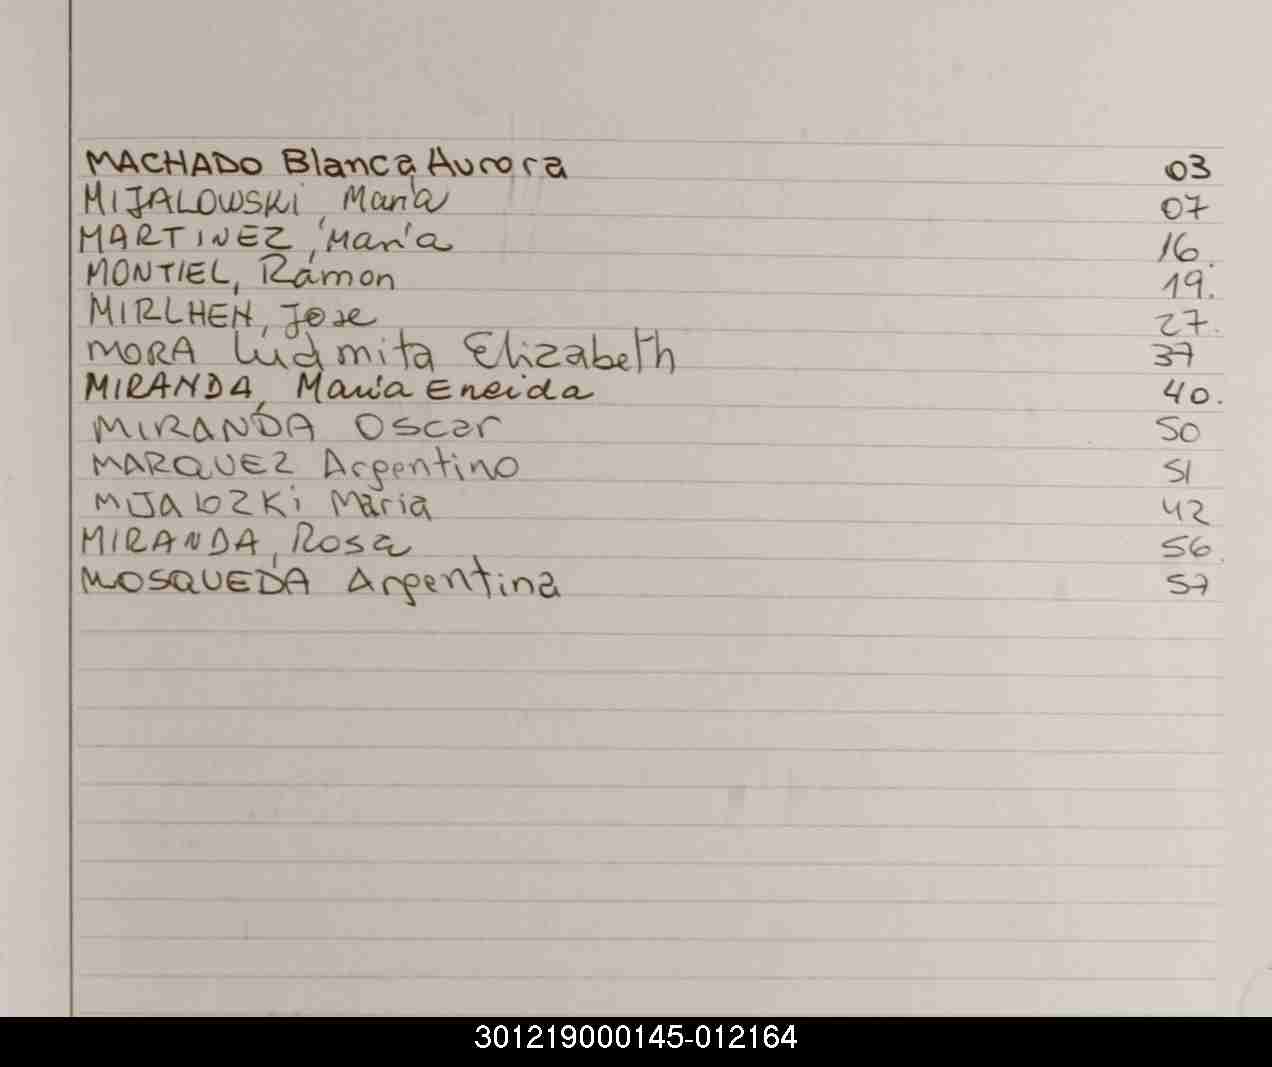 MACHADO Blanca Aurora 03
MIJALOWSKI, María 07
MARTINEZ, María 16.
MONTIEL, Ramón 19.
MIRLHEN, Jose 27.
MORA Ludmita Elizabeth 37
MIRANDA, María Eneida 40.
MIRANDA Oscar 50
MARQUEZ Argentino 51
MIJALOZKi Maria 42
MIRANDA, Rosa 56.
MOSQUEDA Argentina 57
301219000145-012164